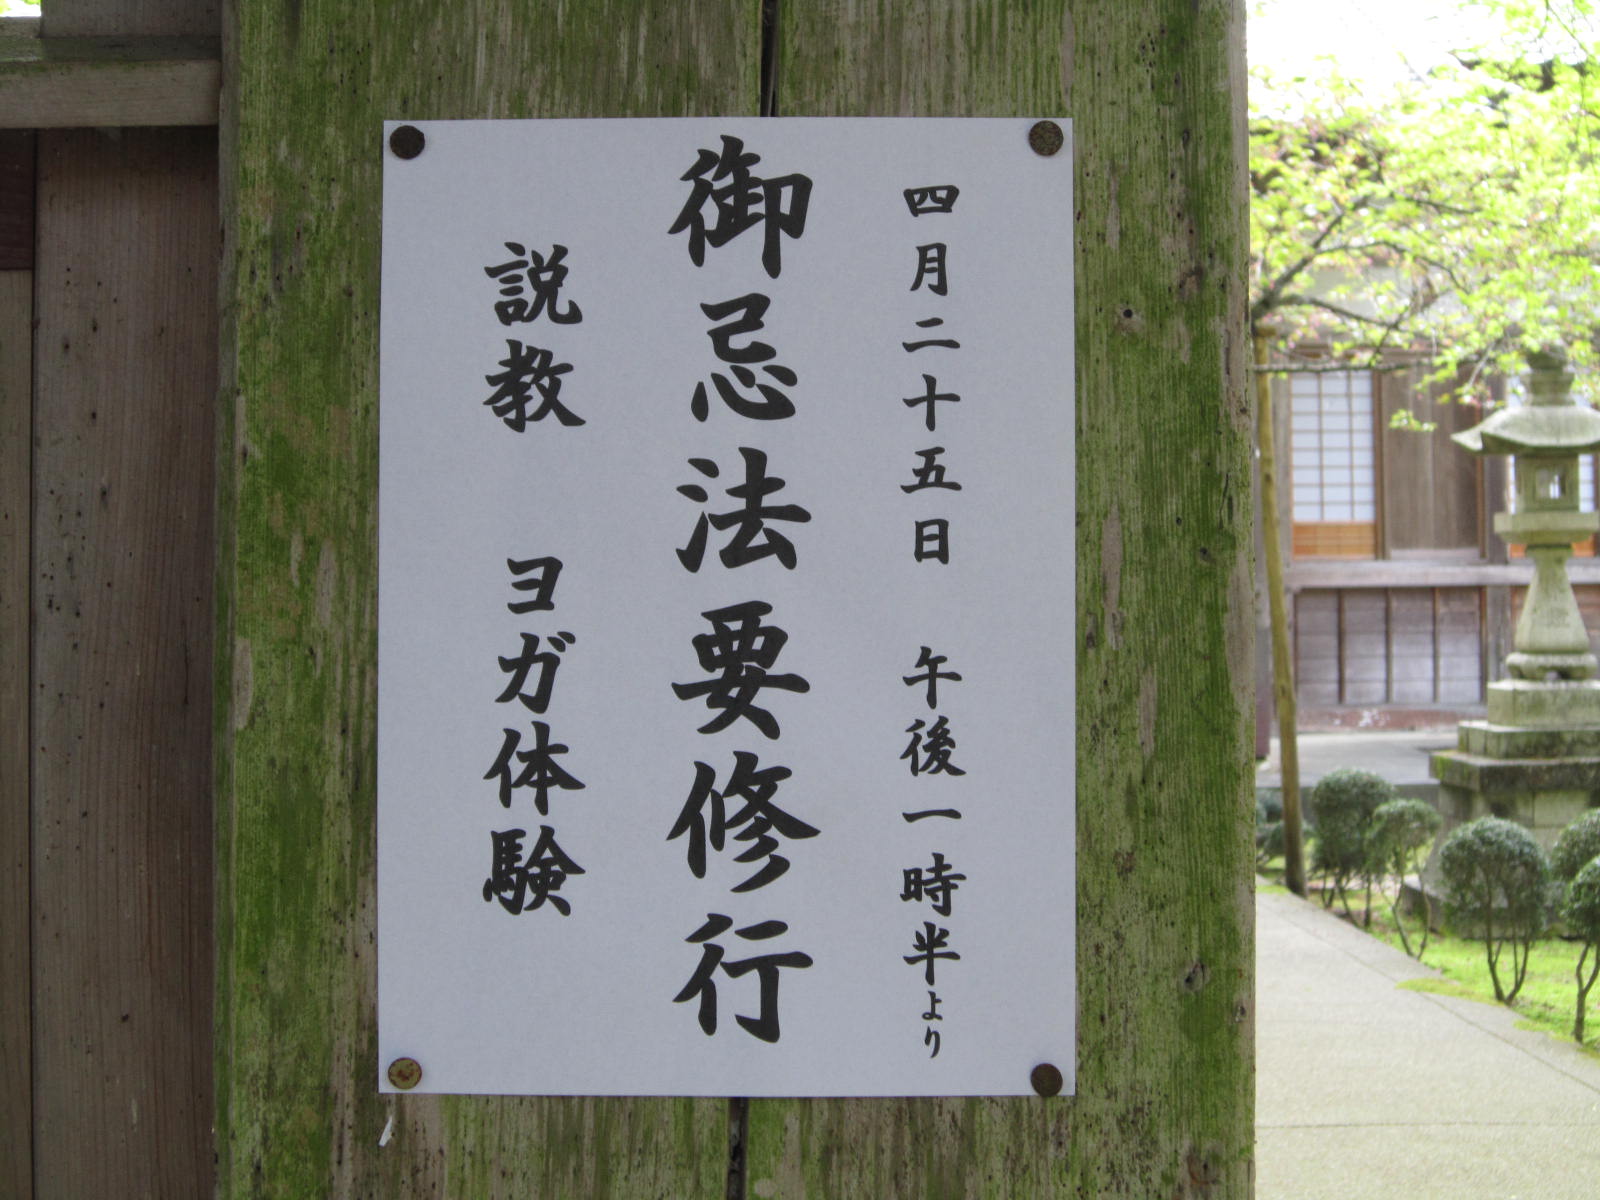 四月二十五日　午後一時半より
御忌法要修行
説教　ヨガ体験